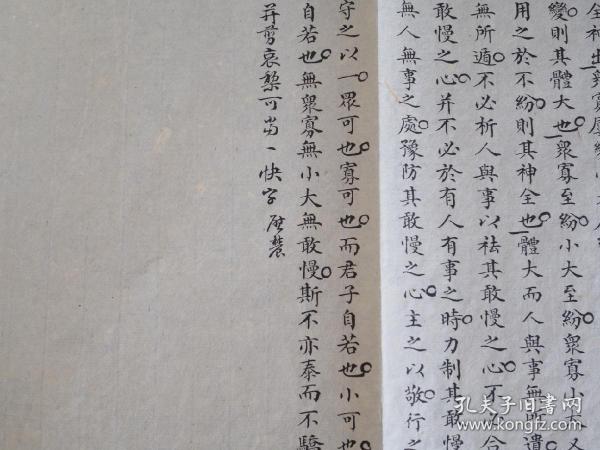 變則其體大也衆寡至紛小大至紛衆寡小大又
用之於不紛則其神全也體大而人與事無所遺
無所遁不必析人與事以祛其敢慢之心不必合
敢慢之心并不必於有人有事之時力制其敢慢
無人無事之處豫防其敢慢之心主之以敬行之
守之以一眾可也寡可也而君子自若也小可也
自若也無衆寡無小大無敢慢斯不亦泰而不驕
并剪哀梨可當一快字
孔夫子旧书网
www.kongfz.com